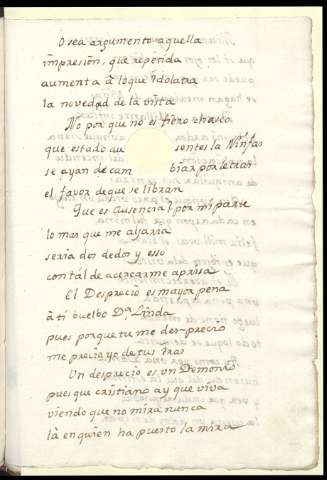 O sea argumento aquella
impresion, que repetida
aumenta â lo que ydolatra
la novedad de la vista
No por que no es fiero chasco
que estado au sentes la Ninfas
se ayan de cam biar por letras
el favor de que se libran
Que es Ausencia? por mi parte
lo mas que me alejaria
seria dos dedos y esso
con tal de acercarme aprisa
El Desprecio es mayor pena
â ti buelbo Dª Linda
pues porque tu me desprecio
me precio yo de tus iras
Un desprecio es un Demonio
pues que cristiano ay que viva
viendo que no mira nunca
lâ en quien ha puesto la mira